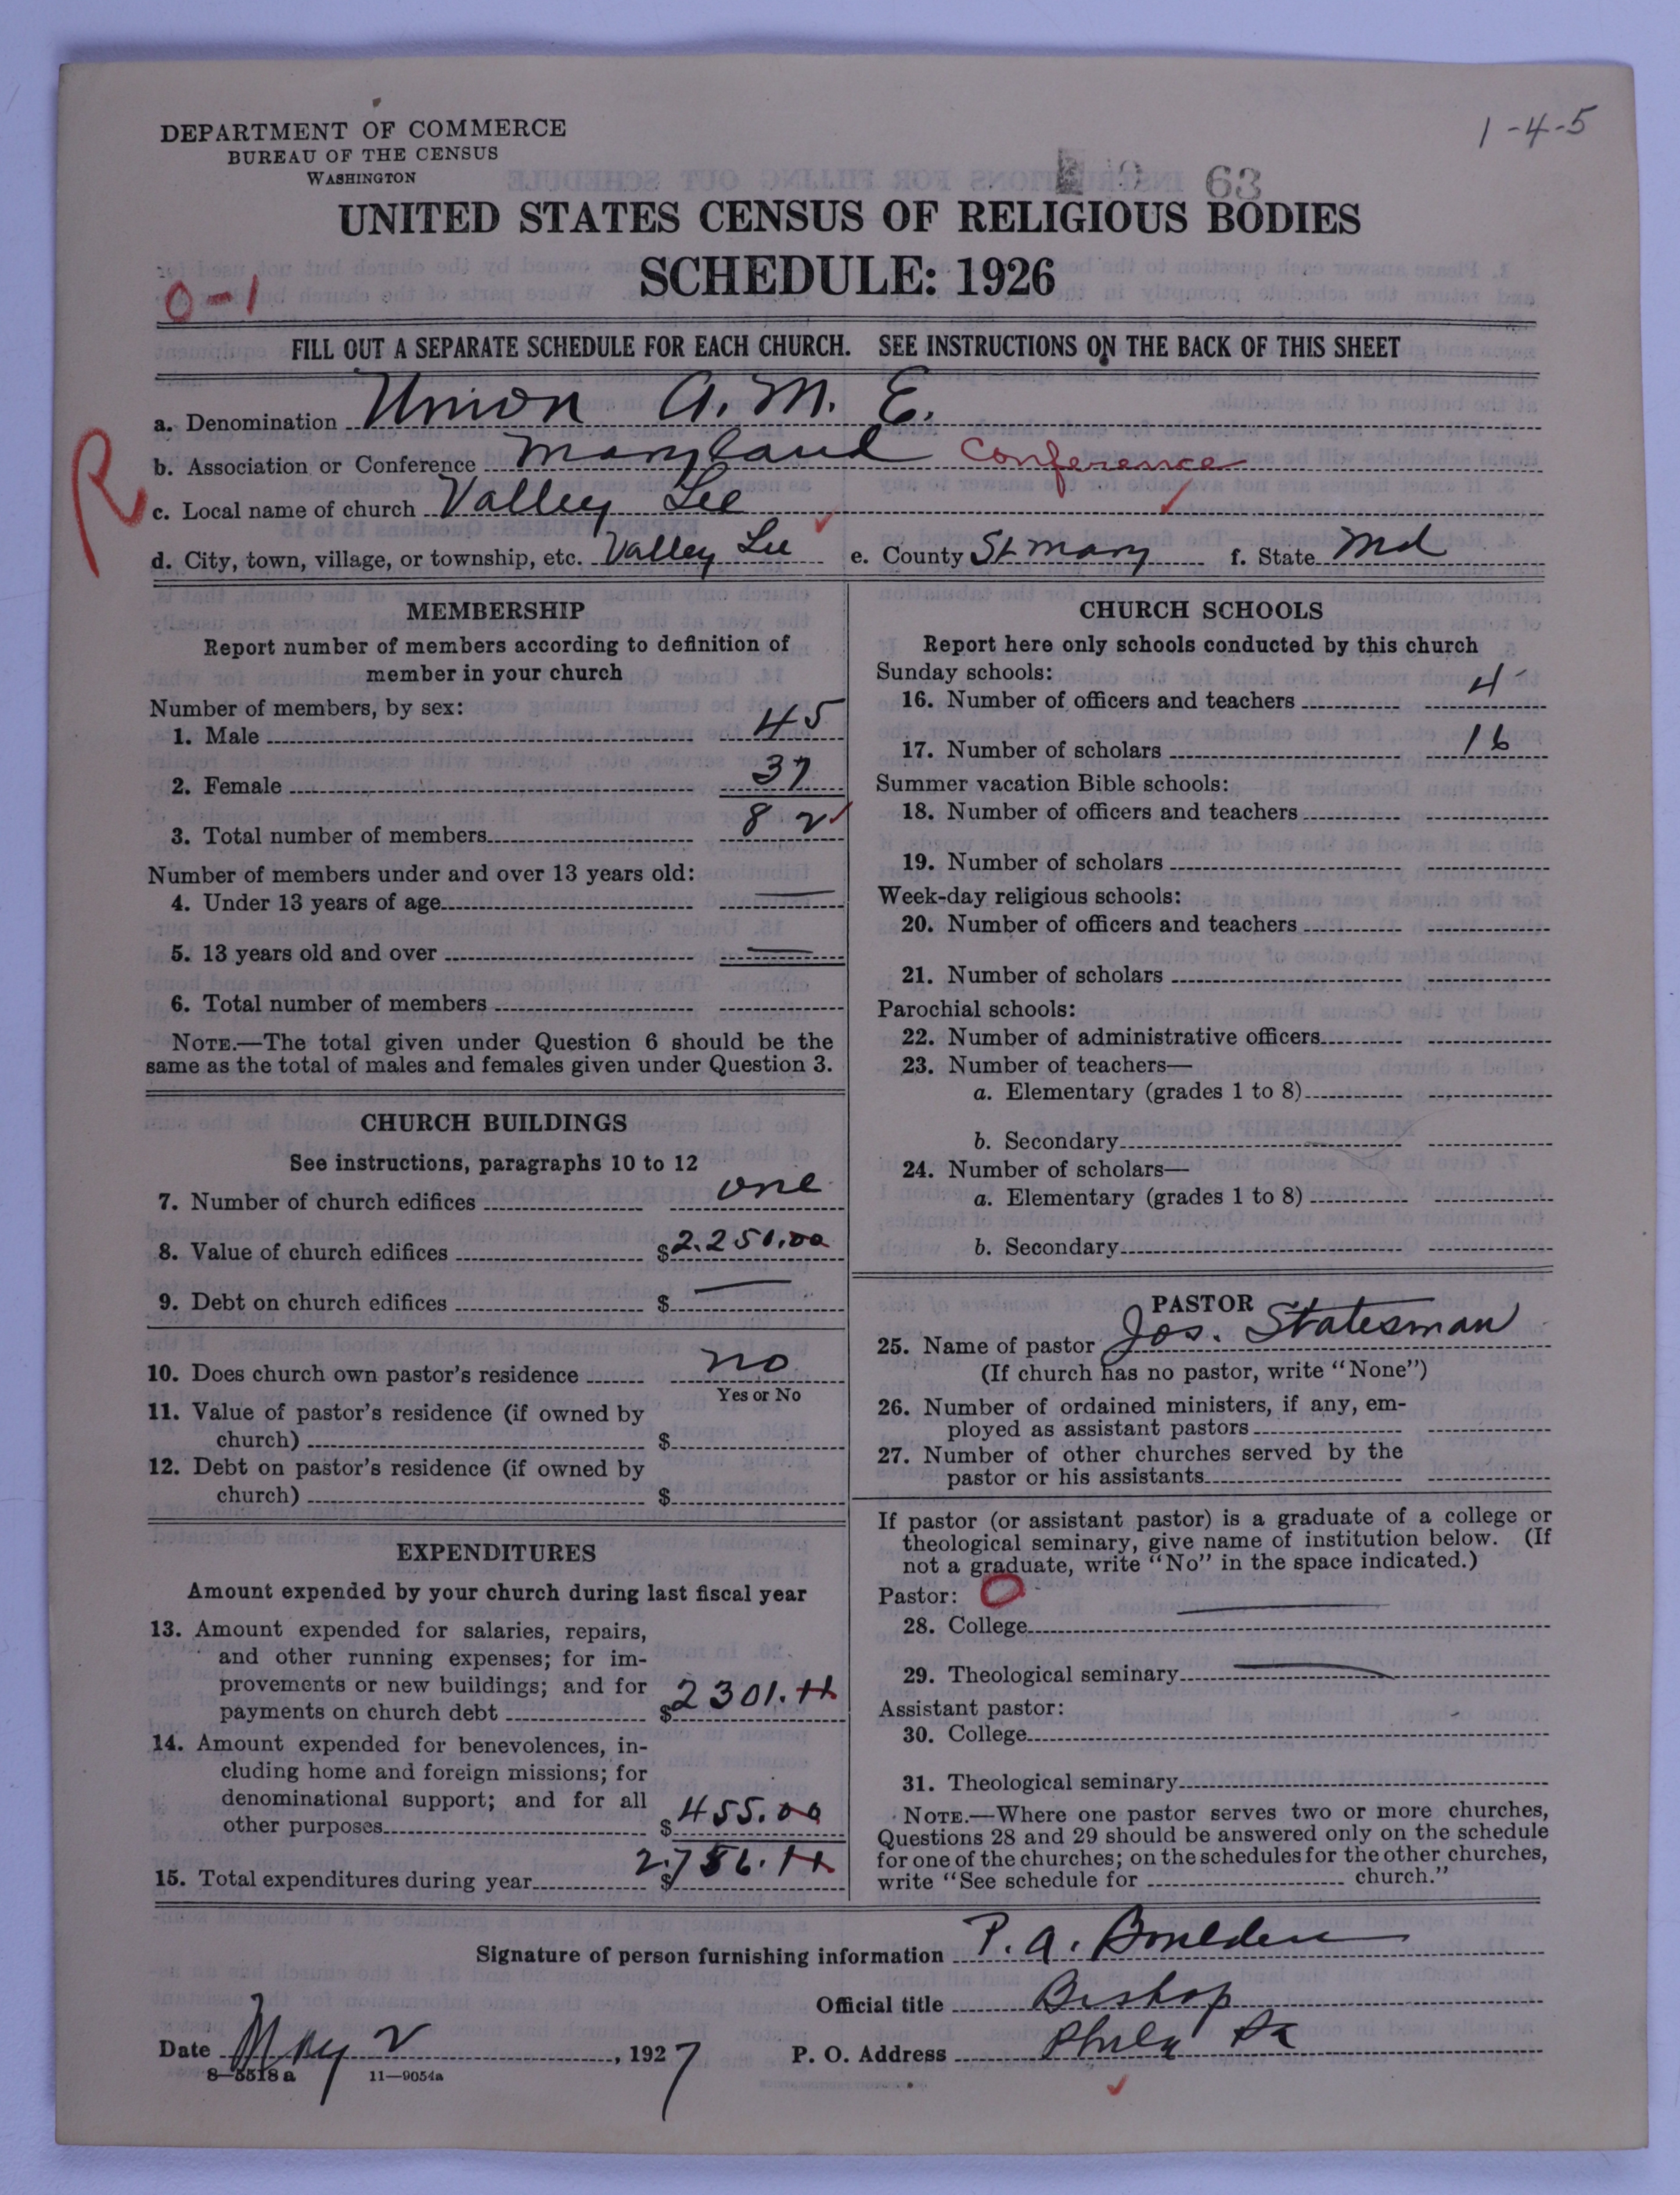 1-4-5
DEPARTMENT OF COMMERCE
BUREAU OF THE CENSUS
WASHINGTON
63
UNITED STATES CENSUS OF RELIGIOUS BODIES
SCHEDULE: 1926
0-1
FILL OUT A SEPARATE SCHEDULE FOR EACH CHURCH. SEE INSTRUCTIONS ON THE BACK OF THIS SHEET
R
a. Denomination Union A. M. E.
b. Association or Conference Maryland Conference
c. Local name of church Valley Lee
d. City, town, village, or township, etc. Valley Lee e. County St Mary f. State Md
MEMBERSHIP
Report number of members according to definition of
member in your church
Number of members, by sex:
1. Male 45
2. Female 37
3. Total number of members 82
Number of members under and over 13 years old:
4. Under 13 years of age
5. 13 years old and over
6. Total number of members
NOTE.—The total given under Question 6 should be the
same as the total of males and females given under Question 3.
CHURCH BUILDINGS
See instructions, paragraphs 10 to 12
7. Number of church edifices one
8. Value of church edifices $2.250.00
9. Debt on church edifices $
10. Does church own pastor's residence no
Yes or No
11. Value of pastor's residence (if owned by
church) $
12. Debt on pastor's residence (if owned by
church) $
EXPENDITURES
Amount expended by your church during last fiscal year
13. Amount expended for salaries, repairs,
and other running expenses; for im-
provements or new buildings; and for
payments on church debt $2301.11
14. Amount expended for benevolences, in-
cluding home and foreign missions; for
denominational support; and for all
other purposes $455.00
15. Total expenditures during year $2.756.11
CHURCH SCHOOLS
Report here only schools conducted by this church
Sunday schools:
16. Number of officers and teachers 4
17. Number of scholars 16
Summer vacation Bible schools:
18. Number of officers and teachers
19. Number of scholars
Week-day religious schools:
20. Number of officers and teachers
21. Number of scholars
Parochial schools:
22. Number of administrative officers
23. Number of teachers—
a. Elementary (grades 1 to 8)
b. Secondary
24. Number of scholars—
a. Elementary (grades 1 to 8)
b. Secondary
PASTOR
25. Name of pastor Jos. Statesman
(If church has no pastor, write "None")
26. Number of ordained ministers, if any, em-
ployed as assistant pastors
27. Number of other churches served by the
pastor or his assistants
If pastor (or assistant pastor) is a graduate of a college or
theological seminary, give name of institution below. (If
not a graduate, write "No" in the space indicated.)
Pastor: 0
28. College
29. Theological seminary
Assistant pastor:
30. College
31. Theological seminary
NOTE.—Where one pastor serves two or more churches,
Questions 28 and 29 should be answered only on the schedule
for one of the churches; on the schedules for the other churches,
write "See schedule for church."
Signature of person furnishing information P. A. Boulden
Official title Bishop
Date May 2, 1927 P. O. Address Phila Pa
8—5518a 11—9054a